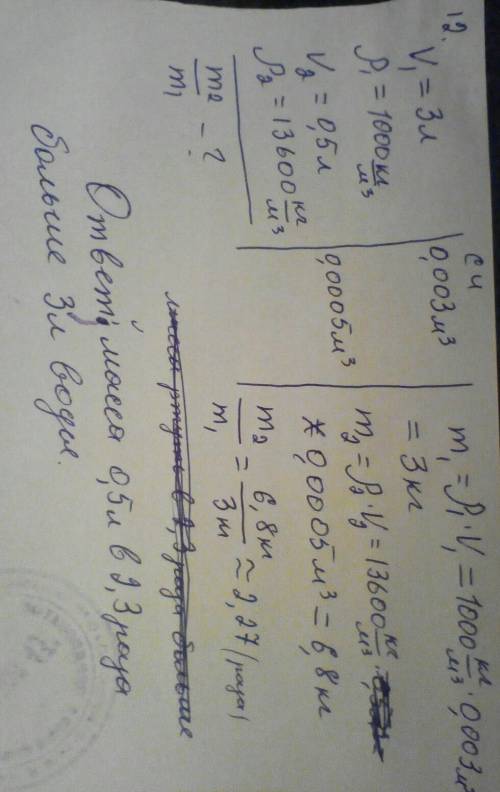 12.
V₁ = 3л
ρ₁ = 1000 кг/м³
V₂ = 0,5л
ρ₂ = 13600 кг/м³
m₂/m₁ - ?
СИ
0,003 м³
0,0005 м³
m₁ = ρ₁·V₁ = 1000 кг/м³ · 0,003 м³
= 3 кг
m₂ = ρ₂·V₂ = 13600 кг/м³ ·
* 0,0005 м³ = 6,8 кг
m₂/m₁ = 6,8 кг/3 кг ≈ 2,27 (раза)
масса ртути в 2,3 раза больше
Ответ: масса 0,5 л в 2,3 раза
больше 3л воды.